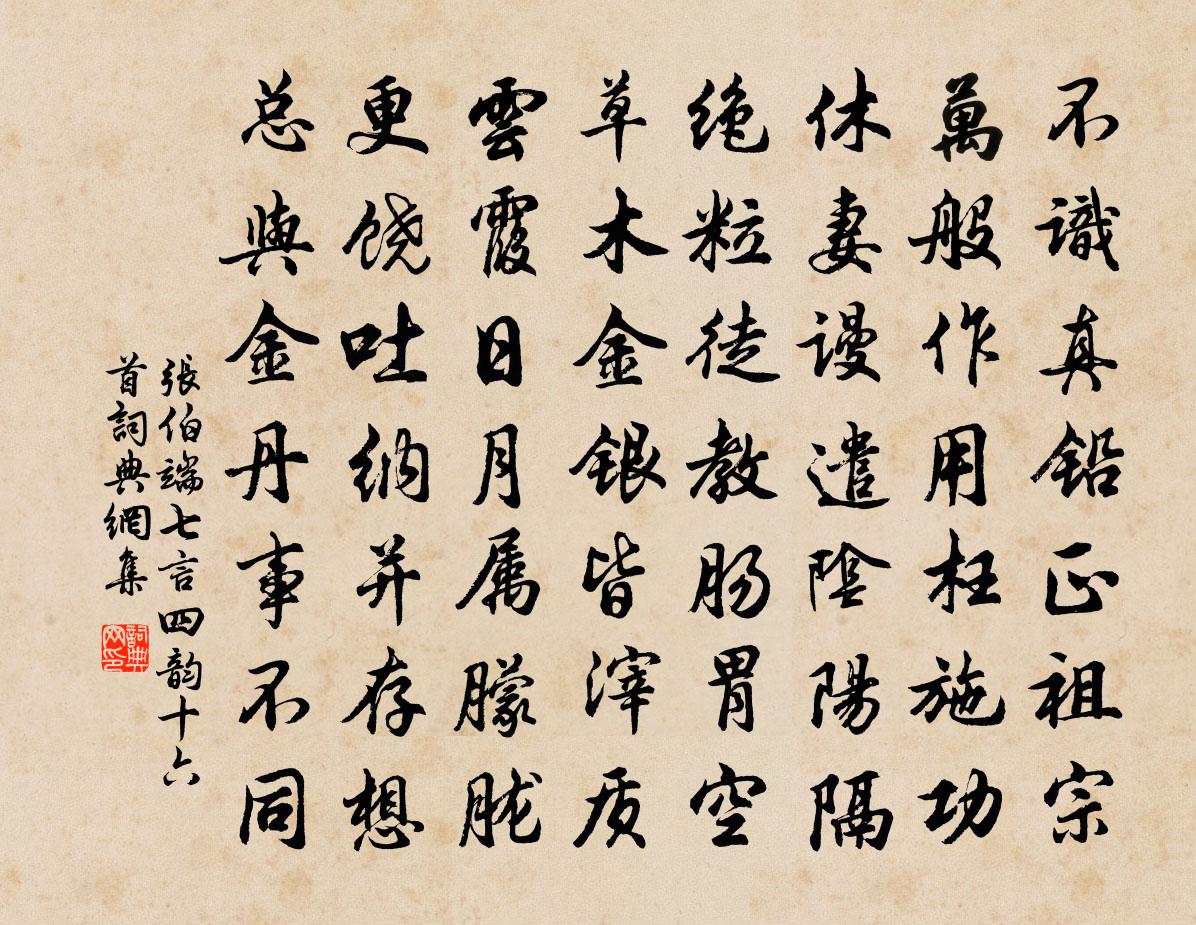 不識真鉛正祖宗
萬般作用枉施功
休妻謾遣陰陽隔
绝粒徒教肠胃空
草木金銀皆滓质
雲霞日月属朦胧
更饶吐纳并存想
总與金丹事不同
張伯端七言四韵十六
首詞典網集
詞典
网印